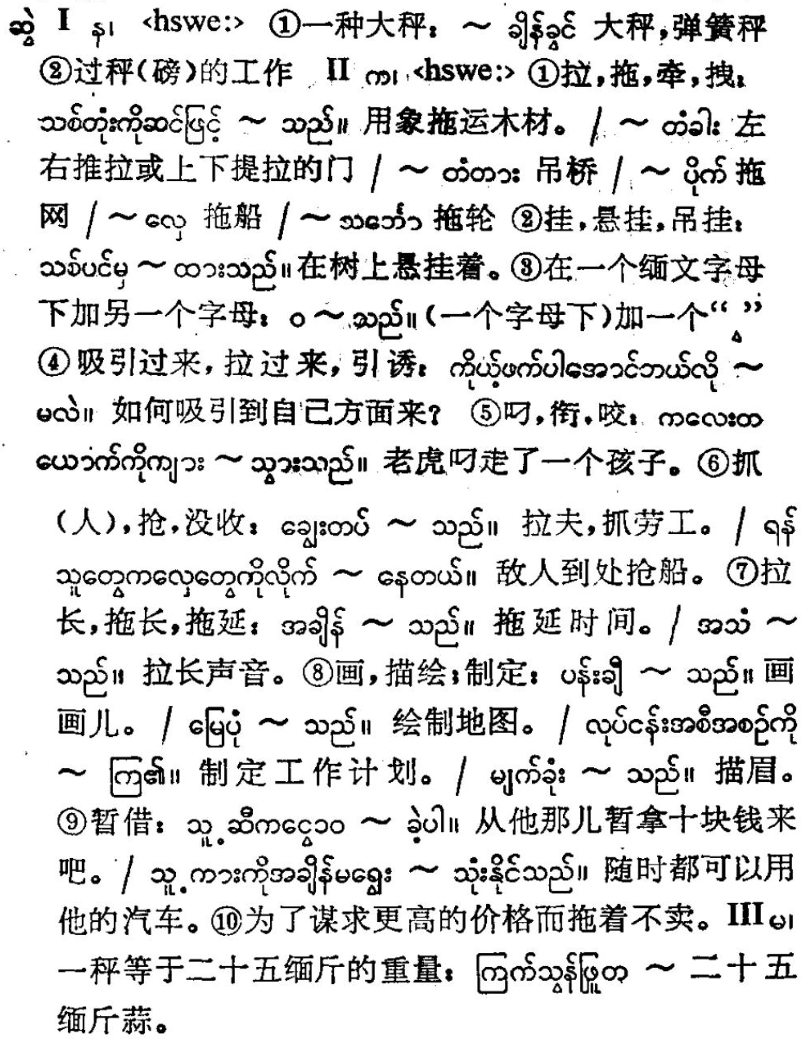 ဆွဲ I န၊ <hswe:> ①一种大秤：~ ချိန်ခွင် 大秤,弹簧秤
②过秤(磅)的工作 II ကြ၊ <hswe:> ①拉,拖,牵,拽：
သစ်တုံးကိုဆင်ဖြင့် ~ သည်။ 用象拖运木材。/ ~ တံခါး 左
右推拉或上下提拉的门 / ~ တံတား 吊桥 / ~ ပိုက် 拖
网 / ~ လှေ 拖船 / ~ သင်္ဘော 拖轮 ②挂,悬挂,吊挂：
သစ်ပင်မှ ~ ထားသည်။ 在树上悬挂着。③在一个缅文字母
下加另一个字母：ဝ ~ သည်။ (一个字母下)加一个“ ွ ”
④吸引过来,拉过来,引诱：ကိုယ့်ဖက်ပါအောင်ဘယ်လို ~
မလဲ။ 如何吸引到自己方面来? ⑤叼,衔,咬：ကလေးတ
ယောက်ကိုကျား ~ သွားသည်။ 老虎叼走了一个孩子。⑥抓
(人),抢,没收：ချွေးတပ် ~ သည်။ 拉夫,抓劳工。/ ရန်
သူတွေကလှေတွေကိုလိုက် ~ နေတယ်။ 敌人到处抢船。⑦拉
长,拖长,拖延：အချိန် ~ သည်။ 拖延时间。/ အသံ ~
သည်။ 拉长声音。⑧画,描绘;制定：ပန်းချီ ~ သည်။ 画
画儿。/ မြေပုံ ~ သည်။ 绘制地图。/ လုပ်ငန်းအစီအစဉ်ကို
~ ကြ၏။ 制定工作计划。/ မျက်ခုံး ~ သည်။ 描眉。
⑨暂借：သူ့ဆီကငွေ၁၀ ~ ခဲ့ပါ။ 从他那儿暂拿十块钱来
吧。/ သူ့ကားကိုအချိန်မရွေး ~ သုံးနိုင်သည်။ 随时都可以用
他的汽车。⑩为了谋求更高的价格而拖着不卖。III မ၊
一秤等于二十五缅斤的重量：ကြက်သွန်ဖြူတ ~ 二十五
缅斤蒜。